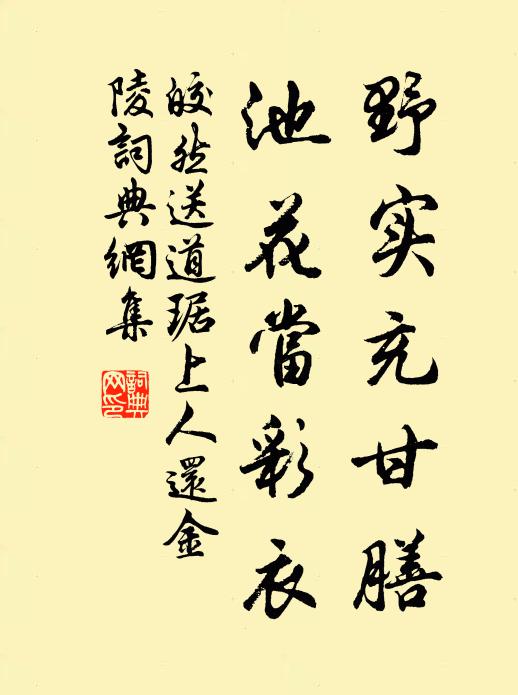 野实充甘膳
池花當彩衣
皎然送道琚上人還金
陵詞典網集
詞典
网印